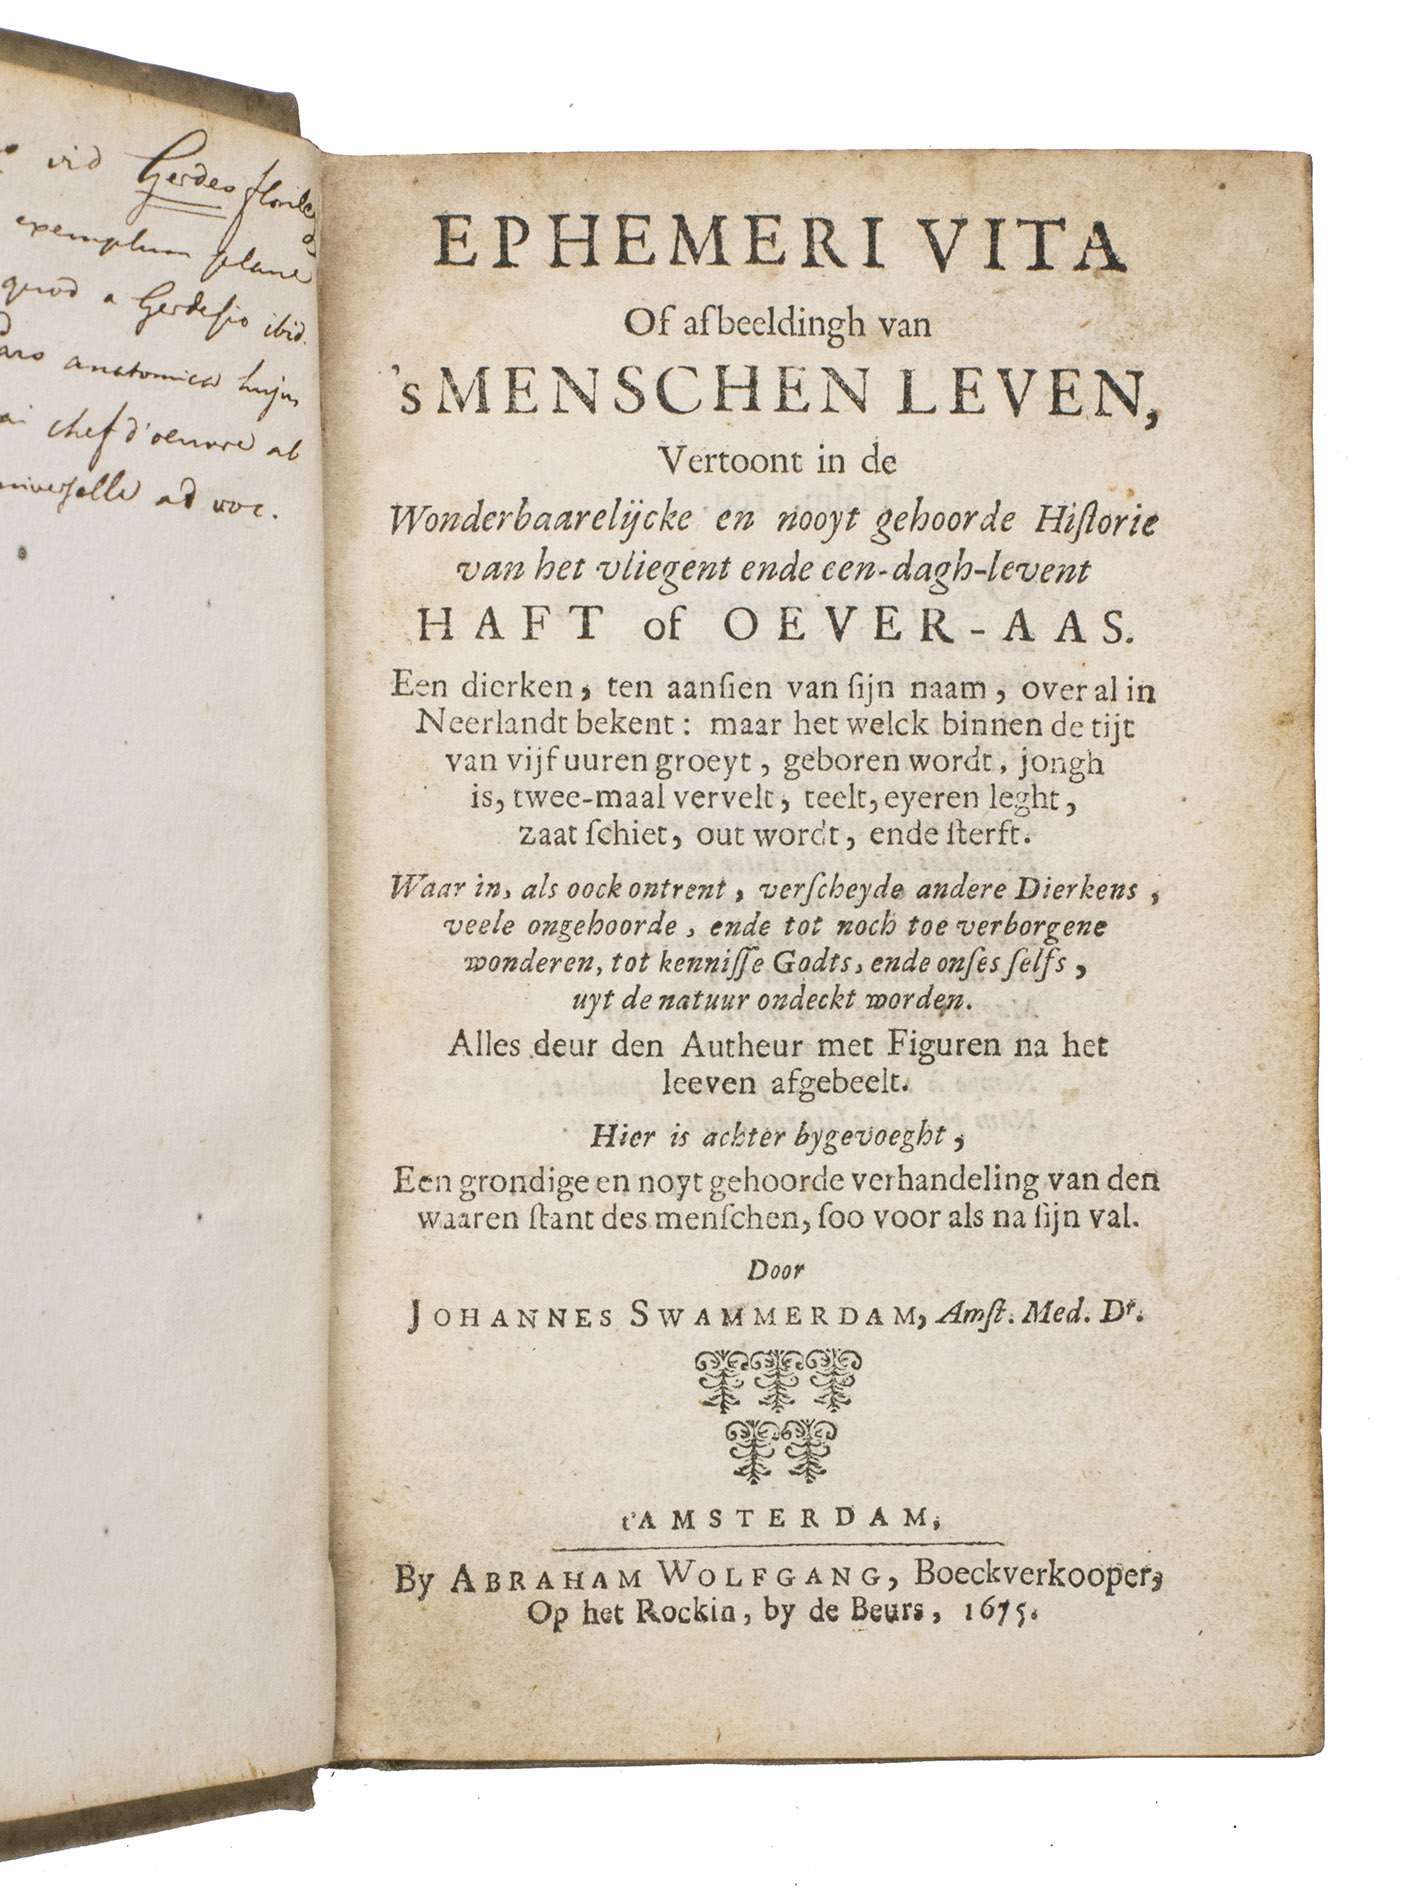 vid Gerdes floril
exemplum plane
quod a Gerdesio ibid.
anatomica hujus
chef d'oeuvre ab
ad voc.
EPHEMERI VITA
Of afbeeldingh van
'sMENSCHEN LEVEN,
Vertoont in de
Wonderbaarelijcke en nooyt gehoorde Hiſtorie
van het vliegent ende een-dagh-levent
HAFT of OEVER-AAS.
Een dierken, ten aanſien van ſijn naam, over al in
Neerlandt bekent: maar het welck binnen de tijt
van vijf uuren groeyt, geboren wordt, jongh
is, twee-maal vervelt, teelt, eyeren leght,
zaat ſchiet, out wordt, ende ſterft.
Waar in, als oock ontrent, verſcheyde andere Dierkens,
veele ongehoorde, ende tot noch toe verborgene
wonderen, tot kenniſſe Godts, ende onſes ſelfs,
uyt de natuur ondeckt worden.
Alles deur den Autheur met Figuren na het
leeven afgebeelt.
Hier is achter bygevoeght,
Een grondige en noyt gehoorde verhandeling van den
waaren ſtant des menſchen, ſoo voor als na ſijn val.
Door
JOHANNES SWAMMERDAM, Amſt. Med. Dr.
t'AMSTERDAM,
By ABRAHAM WOLFGANG, Boeckverkooper,
Op het Rockin, by de Beurs, 1675.